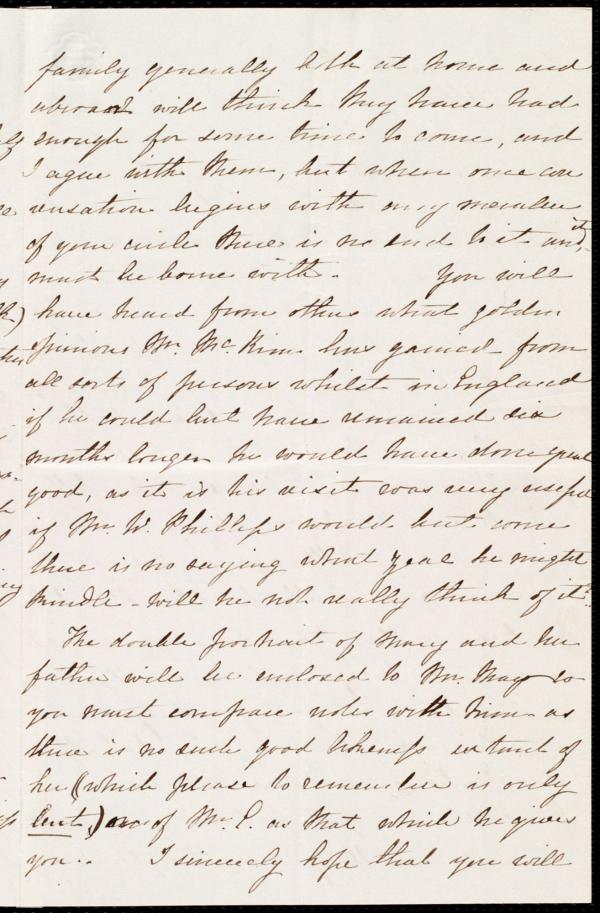 family generally both at home and
abroad will think they have had
enough for some time to come, and
I agree with them, but when once con
versation begins with any member
of your circle there is no end to it and it
must be borne with. You will
have heard from others what golden
opinions Mr. McKim has gained from
all sorts of persons whilst in England
if he could but have remained six
months longer he would have done great
good, as it is his visit was very useful
if Mr. W. Phillips would but come
there is no saying what zeal he might
kindle - will he not really think of it?
The double portrait of Mary and her
father will be enclosed to Mr. May so
you must compare notes with him as
there is no such good likeness extant of
her (which please to remember is only
lent) or of Mr. E. as that which he gives
you.. I sincerely hope that you will